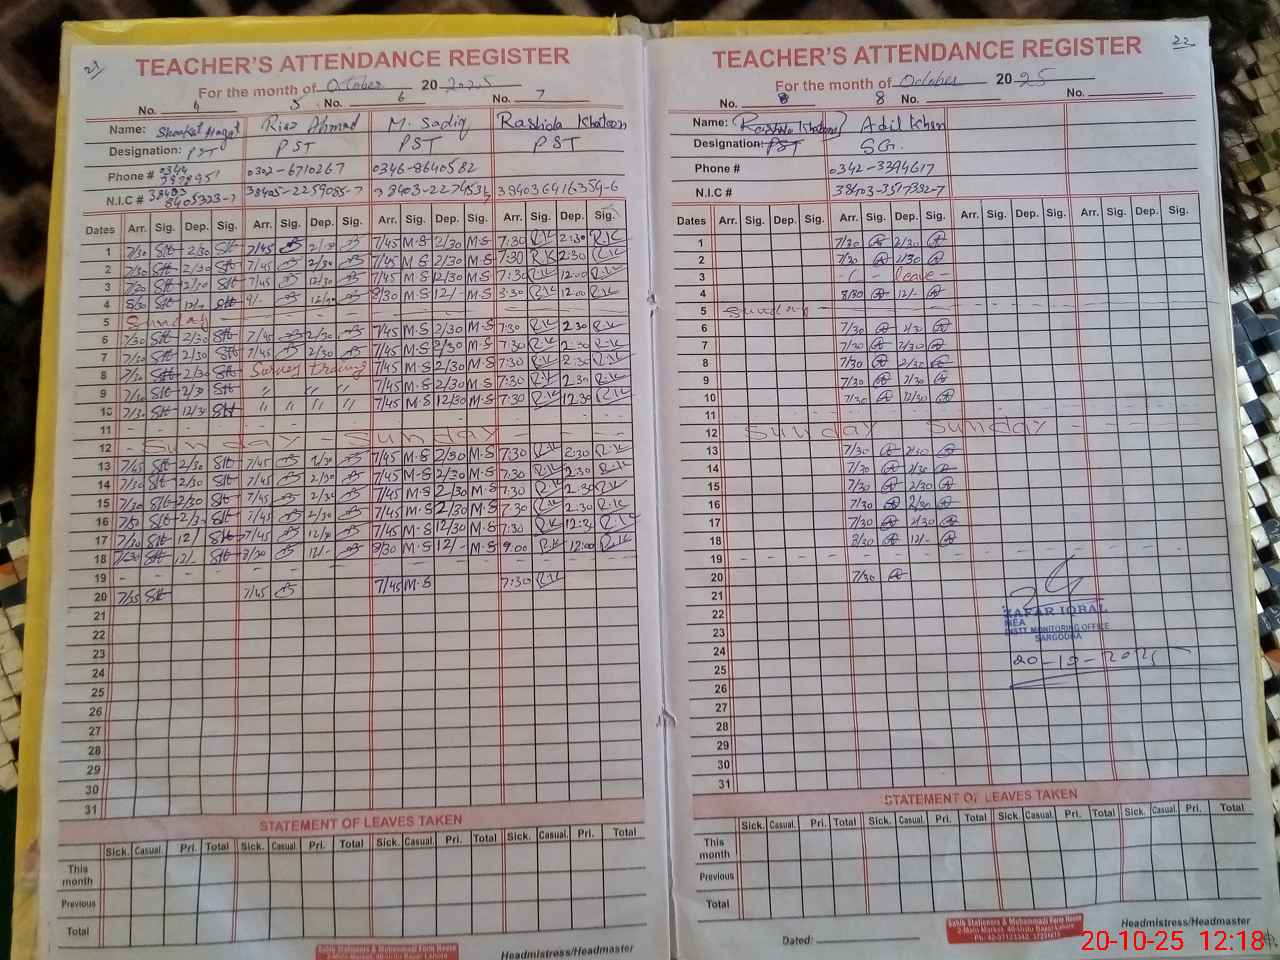 21
TEACHER'S ATTENDANCE REGISTER
For the month of October 20 2025
No. 4 5 No. 6 No. 7
Name: Shoukat Hayat Riaz Ahmad M. Sadiq Rashida Khatoon
Designation: PST PST PST PST
Phone # 0344 0302-6710267 0346-8640582
N.I.C # 38403 38405-2259085-7 38403-2274531 384036416354-6
8405323-7
Dates Arr. Sig. Dep. Sig. Arr. Sig. Dep. Sig. Arr. Sig. Dep. Sig. Arr. Sig. Dep. Sig.
1 7/30 SH 2/30 SH 7/45 2/30 7/45 M.S 2/30 M.S 7:30 R.K 2:30 R.K
2 7/30 SH 2/30 SH 7/45 2/30 7/45 M.S 2/30 M.S 7:30 R.K 2:30 R.K
3 7/20 SH 12/30 SH 7/45 12/30 7/45 M.S 12/30 M.S 7:30 R.K 12:00 R.K
4 8/30 SH 12/- SH 9/- 8/30 M.S 12/- M.S 8:30 R.K 12:00 R.K
5 Sunday
6 7/30 SH 2/30 SH 7/45 2/30 7/45 M.S 2/30 M.S 7:30 R.K 2:30 R.K
7 7/30 SH 2/30 SH 7/45 2/30 7/45 M.S 2/30 M.S 7:30 R.K 2:30 R.K
8 7/30 SH 2/30 SH Survey 7/45 M.S 2/30 M.S 7:30 R.K 2:30 R.K
9 7/30 SH 2/30 SH " " " 7/45 M.S 2/30 M.S 7:30 R.K 2:30 R.K
10 7/30 SH 12/30 SH " " " " 7/45 M.S 12/30 M.S 7:30 R.K 12:30 R.K
11
12 Sunday - Sunday
13 7/45 SH 2/30 SH 7/45 2/30 7/45 M.S 2/30 M.S 7:30 R.K 2:30 R.K
14 7/30 SH 2/30 SH 7/45 2/30 7/45 M.S 2/30 M.S 7:30 R.K 2:30 R.K
15 7/30 SH 2/30 SH 7/45 2/30 7/45 M.S 2/30 M.S 7:30 R.K 2:30 R.K
16 7/30 SH 2/30 SH 7/45 2/30 7/45 M.S 2/30 M.S 7:30 R.K 2:30 R.K
17 7/30 SH 12/ SH 7/45 12/30 7/45 M.S 12/30 M.S 7:30 R.K 12:30 R.K
18 7/30 SH 12/- SH 8/30 12/- 8/30 M.S 12/- M.S 9:00 R.K 12:00 R.K
19
20 7/35 SH 7/45 7/45 M.S 7:30 R.K
21
22
23
24
25
26
27
28
29
30
31
STATEMENT OF LEAVES TAKEN
Sick. Casual. Pri. Total Sick. Casual. Pri. Total Sick. Casual. Pri. Total Sick. Casual. Pri. Total
This month
Previous
Total
Sahib Stationers & Muhammadi Form House
2-Main Market, 40-Urdu Bazar Lahore
Headmistress/Headmaster
22
TEACHER'S ATTENDANCE REGISTER
For the month of October 20 25
No. 8 8 No. No.
Name: Rashida Khatoon Adil Khan
Designation: PST
Phone # 0342-3394617
N.I.C # 38403-3517392-7
Dates Arr. Sig. Dep. Sig. Arr. Sig. Dep. Sig. Arr. Sig. Dep. Sig. Arr. Sig. Dep. Sig.
1 7/30 2/30
2 7/30 2/30
3 - leave -
4 8/30 12/-
5 Sunday
6 7/30 2/30
7 7/30 2/30
8 7/30 2/30
9 7/30 2/30
10 7/30 12/30
11
12 Sunday Sunday
13 7/30 2/30
14 7/30 2/30
15 7/30 2/30
16 7/30 2/30
17 7/30 12/30
18 8/30 12/-
19
20 7/30
21
22
23
24
25
26
27
28
29
30
31
ZAFAR IQBAL
MEA
DISTT MONITORING OFFICE
SARGODHA
20-10-2025
STATEMENT OF LEAVES TAKEN
Sick. Casual. Pri. Total Sick. Casual. Pri. Total Sick. Casual. Pri. Total Sick. Casual. Pri. Total
This month
Previous
Total
Dated:
Sahib Stationers & Muhammadi Form House
2-Main Market, 40-Urdu Bazar Lahore
Headmistress/Headmaster
20-10-25 12:18